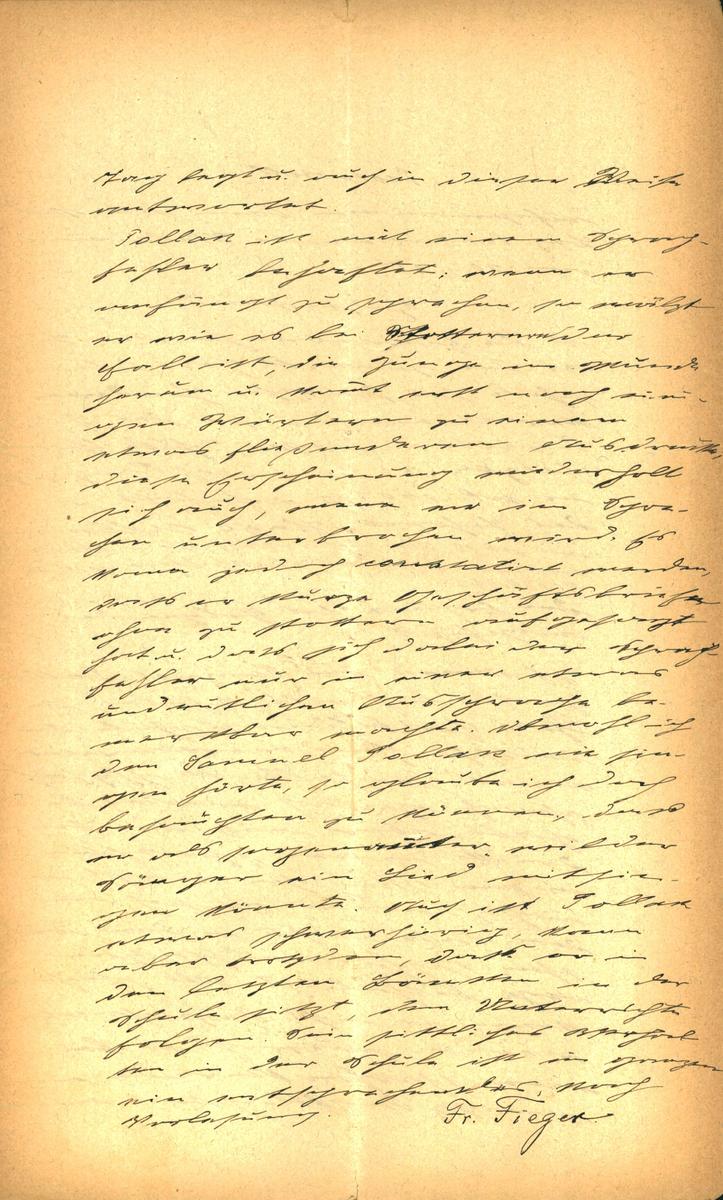 Tag legt u. auch in dieser Weise
antwortet.
Pollak ist mit einem Sprach-
fehler behaftet; wenn er
anfängt zu sprechen, so wälzt
er wie es bei Stotternden der
Fall ist, die Zunge im Munde
herum u. kommt erst nach eini-
gen Wörtern zu einem
etwas fließenderen Ausdrucke,
diese Erscheinung wiederholt
sich auch, wenn er im Spre-
chen unterbrochen wird. Es
kann jedoch constatirt werden,
dass er kurze Geschäftsbriefe
ohne zu stottern aufgesagt
hat u. dass sich dabei der Sprach-
fehler nur in einer etwas
undeutlichen Aussprache be-
merkbar machte. Obwohl ich
den Samuel Pollak nie sin-
gen hörte, so glaube ich doch
behaupten zu können, dass
er als sogenannter wilder
Sänger ein Lied mitsin-
gen könnte. Auch ist Pollak
etwas schwerhörig, kann
aber trotzdem, dass er in
den letzten Bänken in der
Schule sitzt, dem Unterrichte
folgen. Sein sittliches Verhal-
ten in der Schule ist im ganzen
ein entsprechendes, nach
Vorlesung. Fr. Fieger